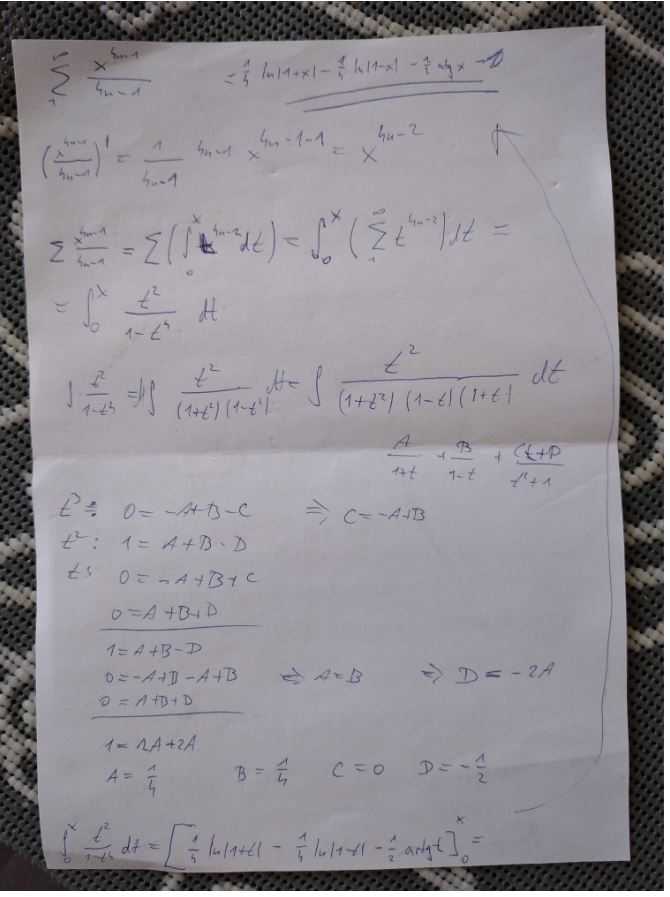 ∑_1^∞ x^(4n-1)/(4n-1) = 1/4 ln|1+x| - 1/4 ln|1-x| - 1/2 arctg x
(x^(4n-1)/(4n-1))' = 1/(4n-1) 4n-1 x^(4n-1-1) = x^(4n-2)
∑ x^(4n-1)/(4n-1) = ∑(∫_0^x t^(4n-2) dt) = ∫_0^x (∑_1^∞ t^(4n-2)) dt =
= ∫_0^x t^2/(1-t^4) dt
∫ t^2/(1-t^4) = ∫ t^2/((1+t^2)(1-t^2)) dt = ∫ t^2/((1+t^2)(1-t)(1+t)) dt
A/(1+t) + B/(1-t) + (Ct+D)/(t^2+1)
t^3: 0 = -A+B-C ⇒ C = -A+B
t^2: 1 = A+B-D
t: 0 = -A+B+C
0 = A+B+D
1 = A+B-D
0 = -A+B-A+B ⇔ A=B ⇒ D = -2A
0 = A+B+D
1 = 2A+2A
A = 1/4 B = 1/4 C = 0 D = -1/2
∫_0^x t^2/(1-t^4) dt = [1/4 ln|1+t| - 1/4 ln|1-t| - 1/2 arctg t]_0^x =